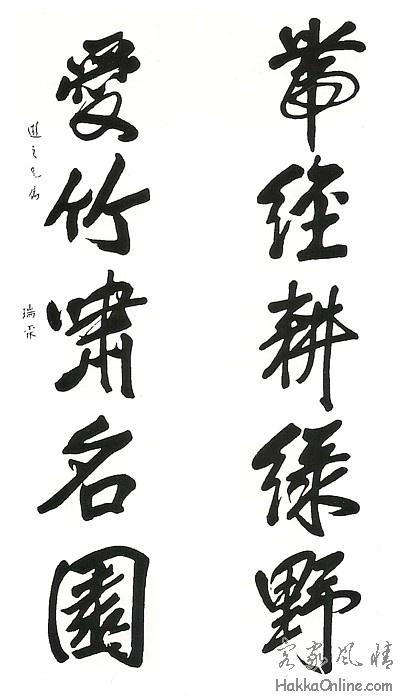 帶經耕綠野
愛竹嘯名園
瑞霖
客家風情
HakkaOnline.com